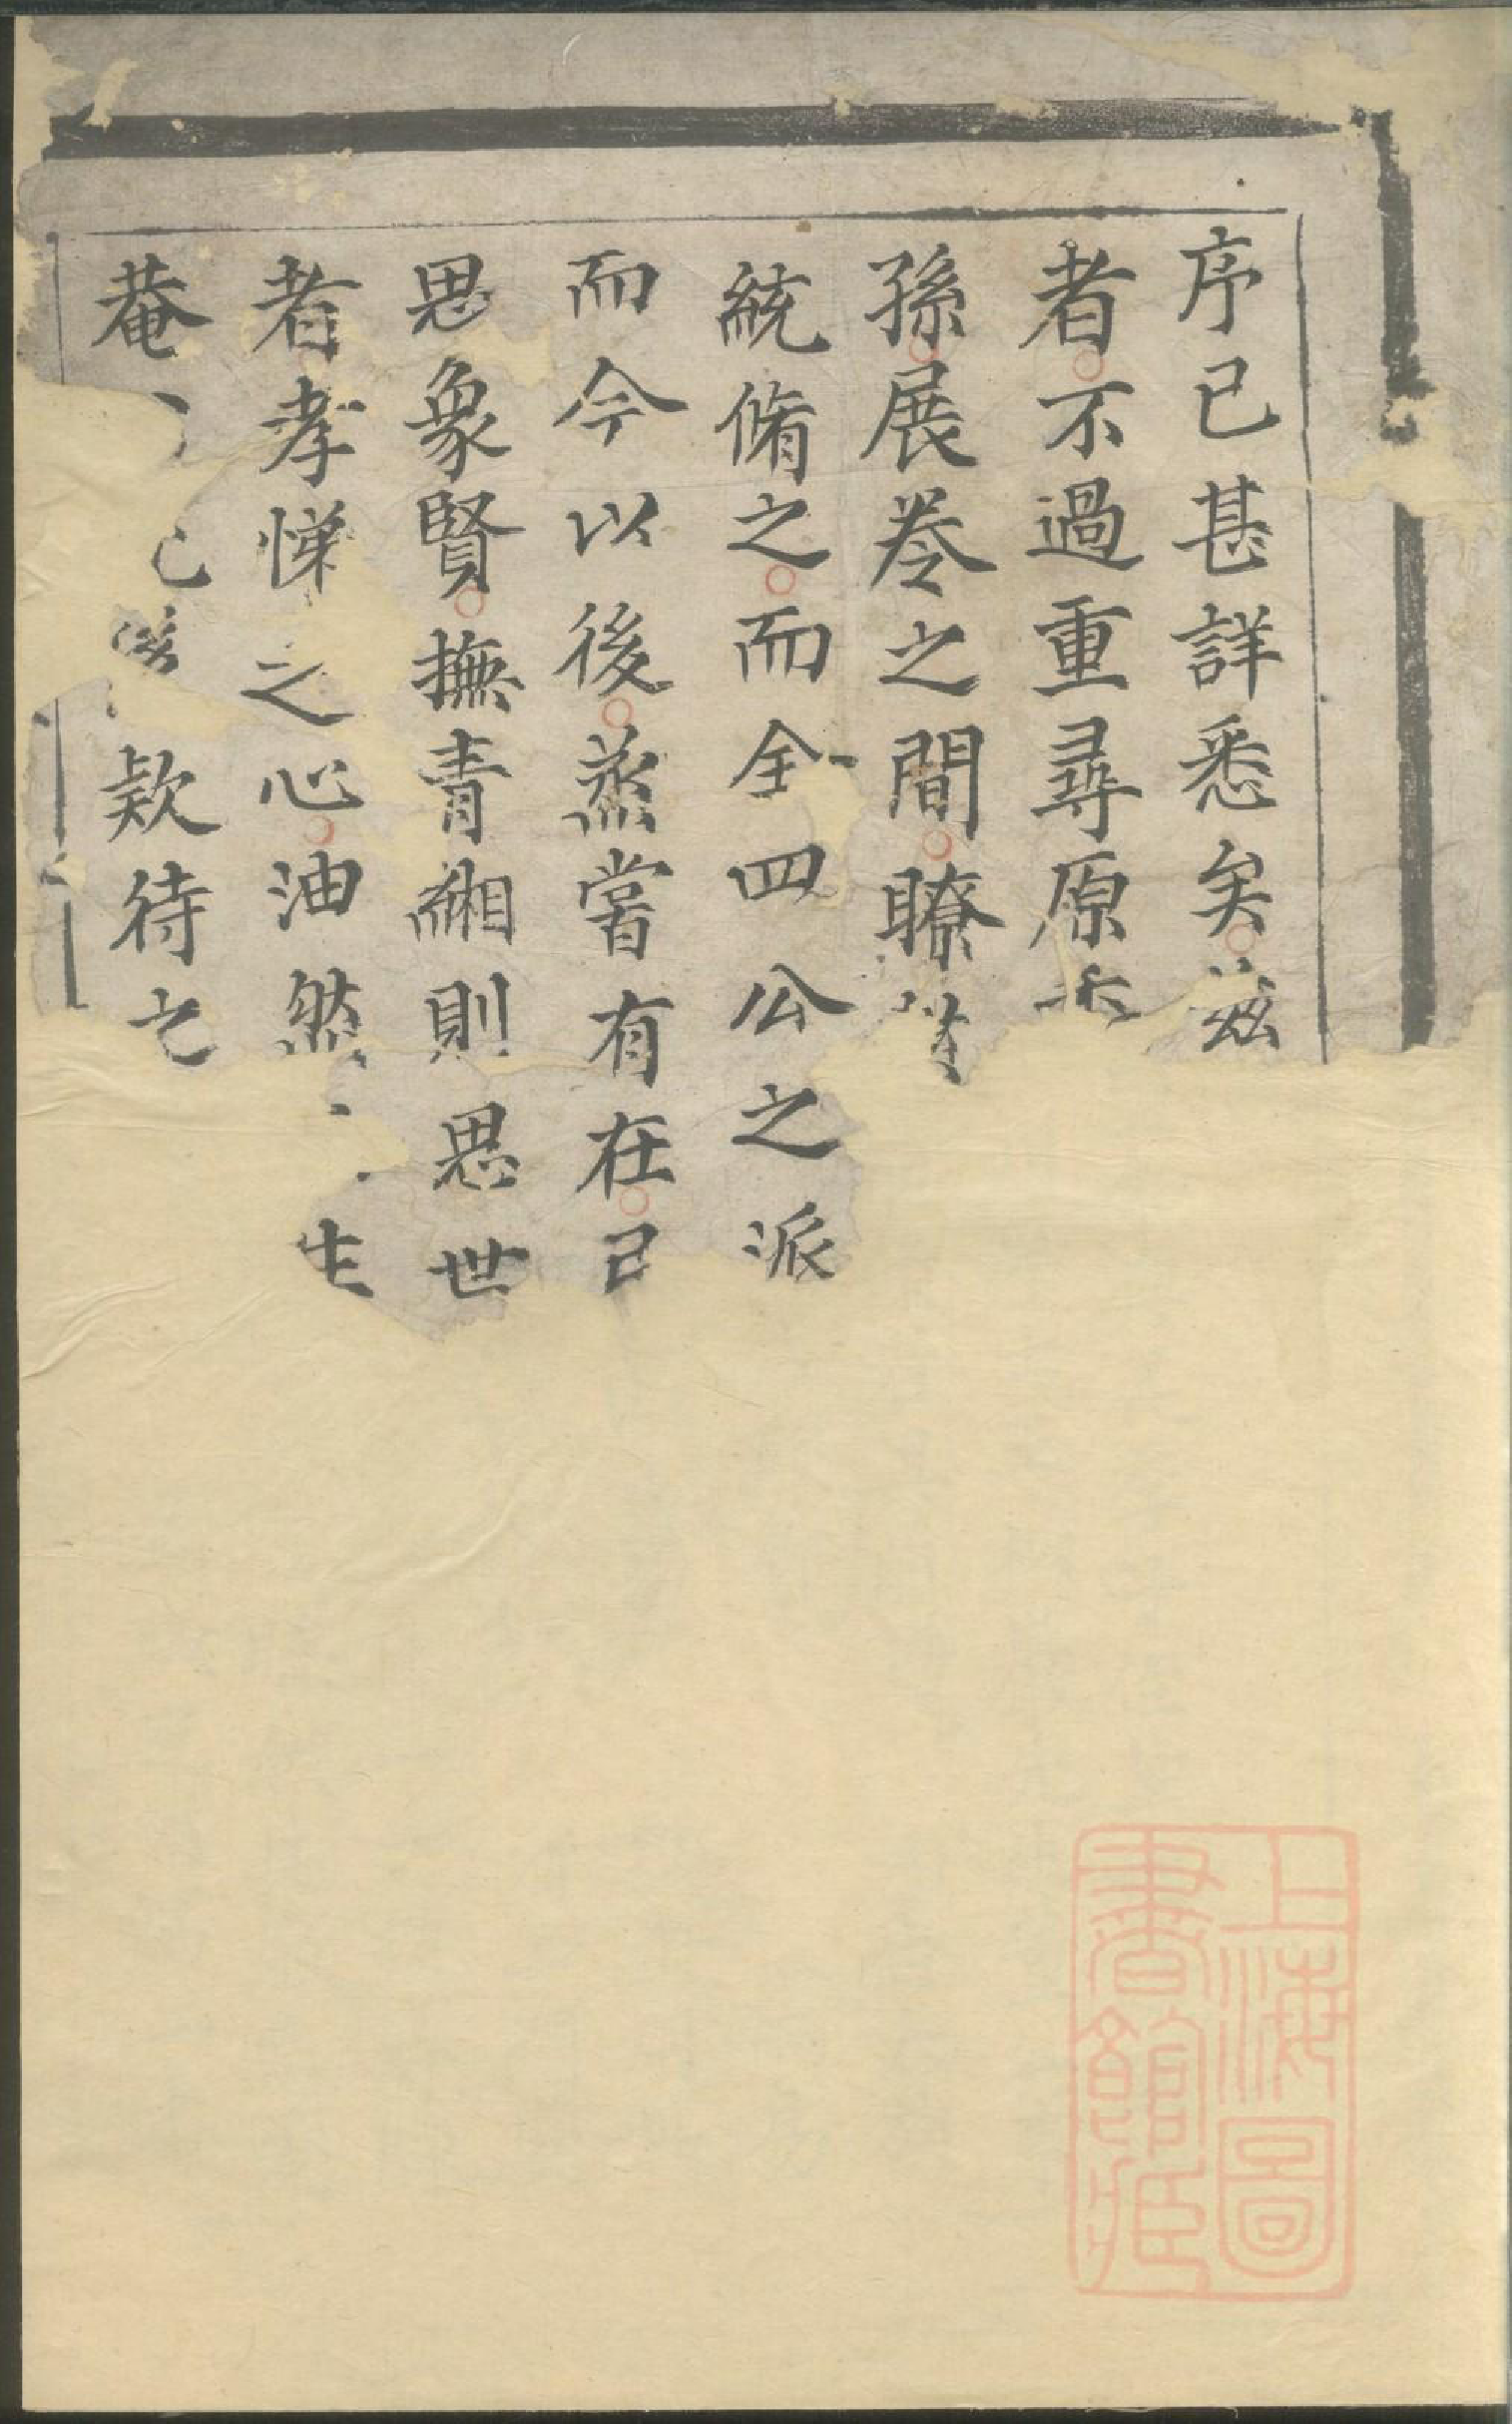 序已甚詳悉矣茲
者不過重尋原
孫展卷之間瞭
統脩之而全四公之派
而今以後蒸嘗有在己
思象賢撫青緗則思世
者孝悌之心油然生
菴欵待之
上海圖
書館藏